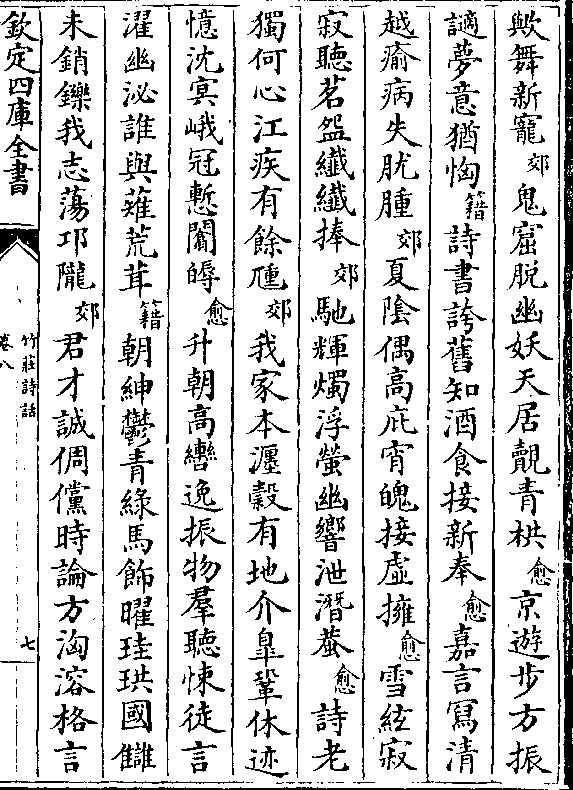 歟舞新寵郊鬼窟脱幽妖天居覿青栱愈京遊步方振
謫夢意猶恟籍詩書誇舊知酒食接新奉愈嘉言冩清
越瘉病失肬腫郊夏陰偶高庇宵魄接虚擁愈雪絃寂
寂聽茗盌纖纖捧郊馳輝燭浮螢幽響泄潛蛬愈詩老
獨何心江疾有餘㾁郊我家本瀍穀有地介臯鞏休迹
憶沈冥峨冠慙闒㙛愈升朝高轡逸振物羣聽悚徒言
濯幽泌誰與薙荒茸籍朝紳鬱青綠馬飾曜珪珙國讎
未銷鑠我志蕩邛隴郊君才誠倜儻時論方洶溶格言
欽定四庫全書
竹莊詩話
卷八
七